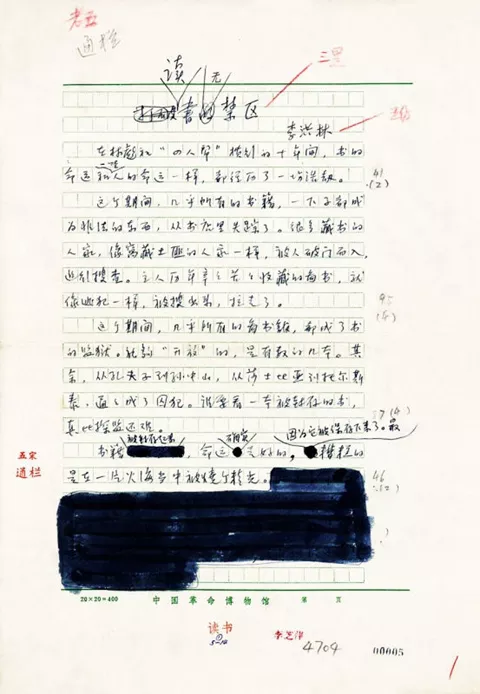 通栏
读 无
书的禁区
三黑
李洪林
在林彪和“四人帮”横行的十年间，书的
命运和人的命运一样，都经历了一场浩劫。
这个期间，几乎所有的书籍，一下子都成
为非法的东西，从书店里失踪了。很多藏书的
人家，像窝藏土匪的人家一样，被人破门而入，
进行搜查。主人历年辛辛苦苦收藏的图书，就
像逃犯一样，被搜出来，拉走了。
这个期间，几乎所有的图书馆，都成了书
的监狱。能够“开放”的，是有数的几本。其
余，从孔夫子到孙中山，从莎士比亚到托尔斯
泰，通通成了囚犯。谁要看一本被封存的书，
真比探监还难。
被封存起来 确实 因为它被保存下来了。最
书籍，命运是好的，糟糕的
是在一片火海当中被烧个精光。
五宋
通栏
20×20=400 中国革命博物馆 第 页
读书
4704
00005